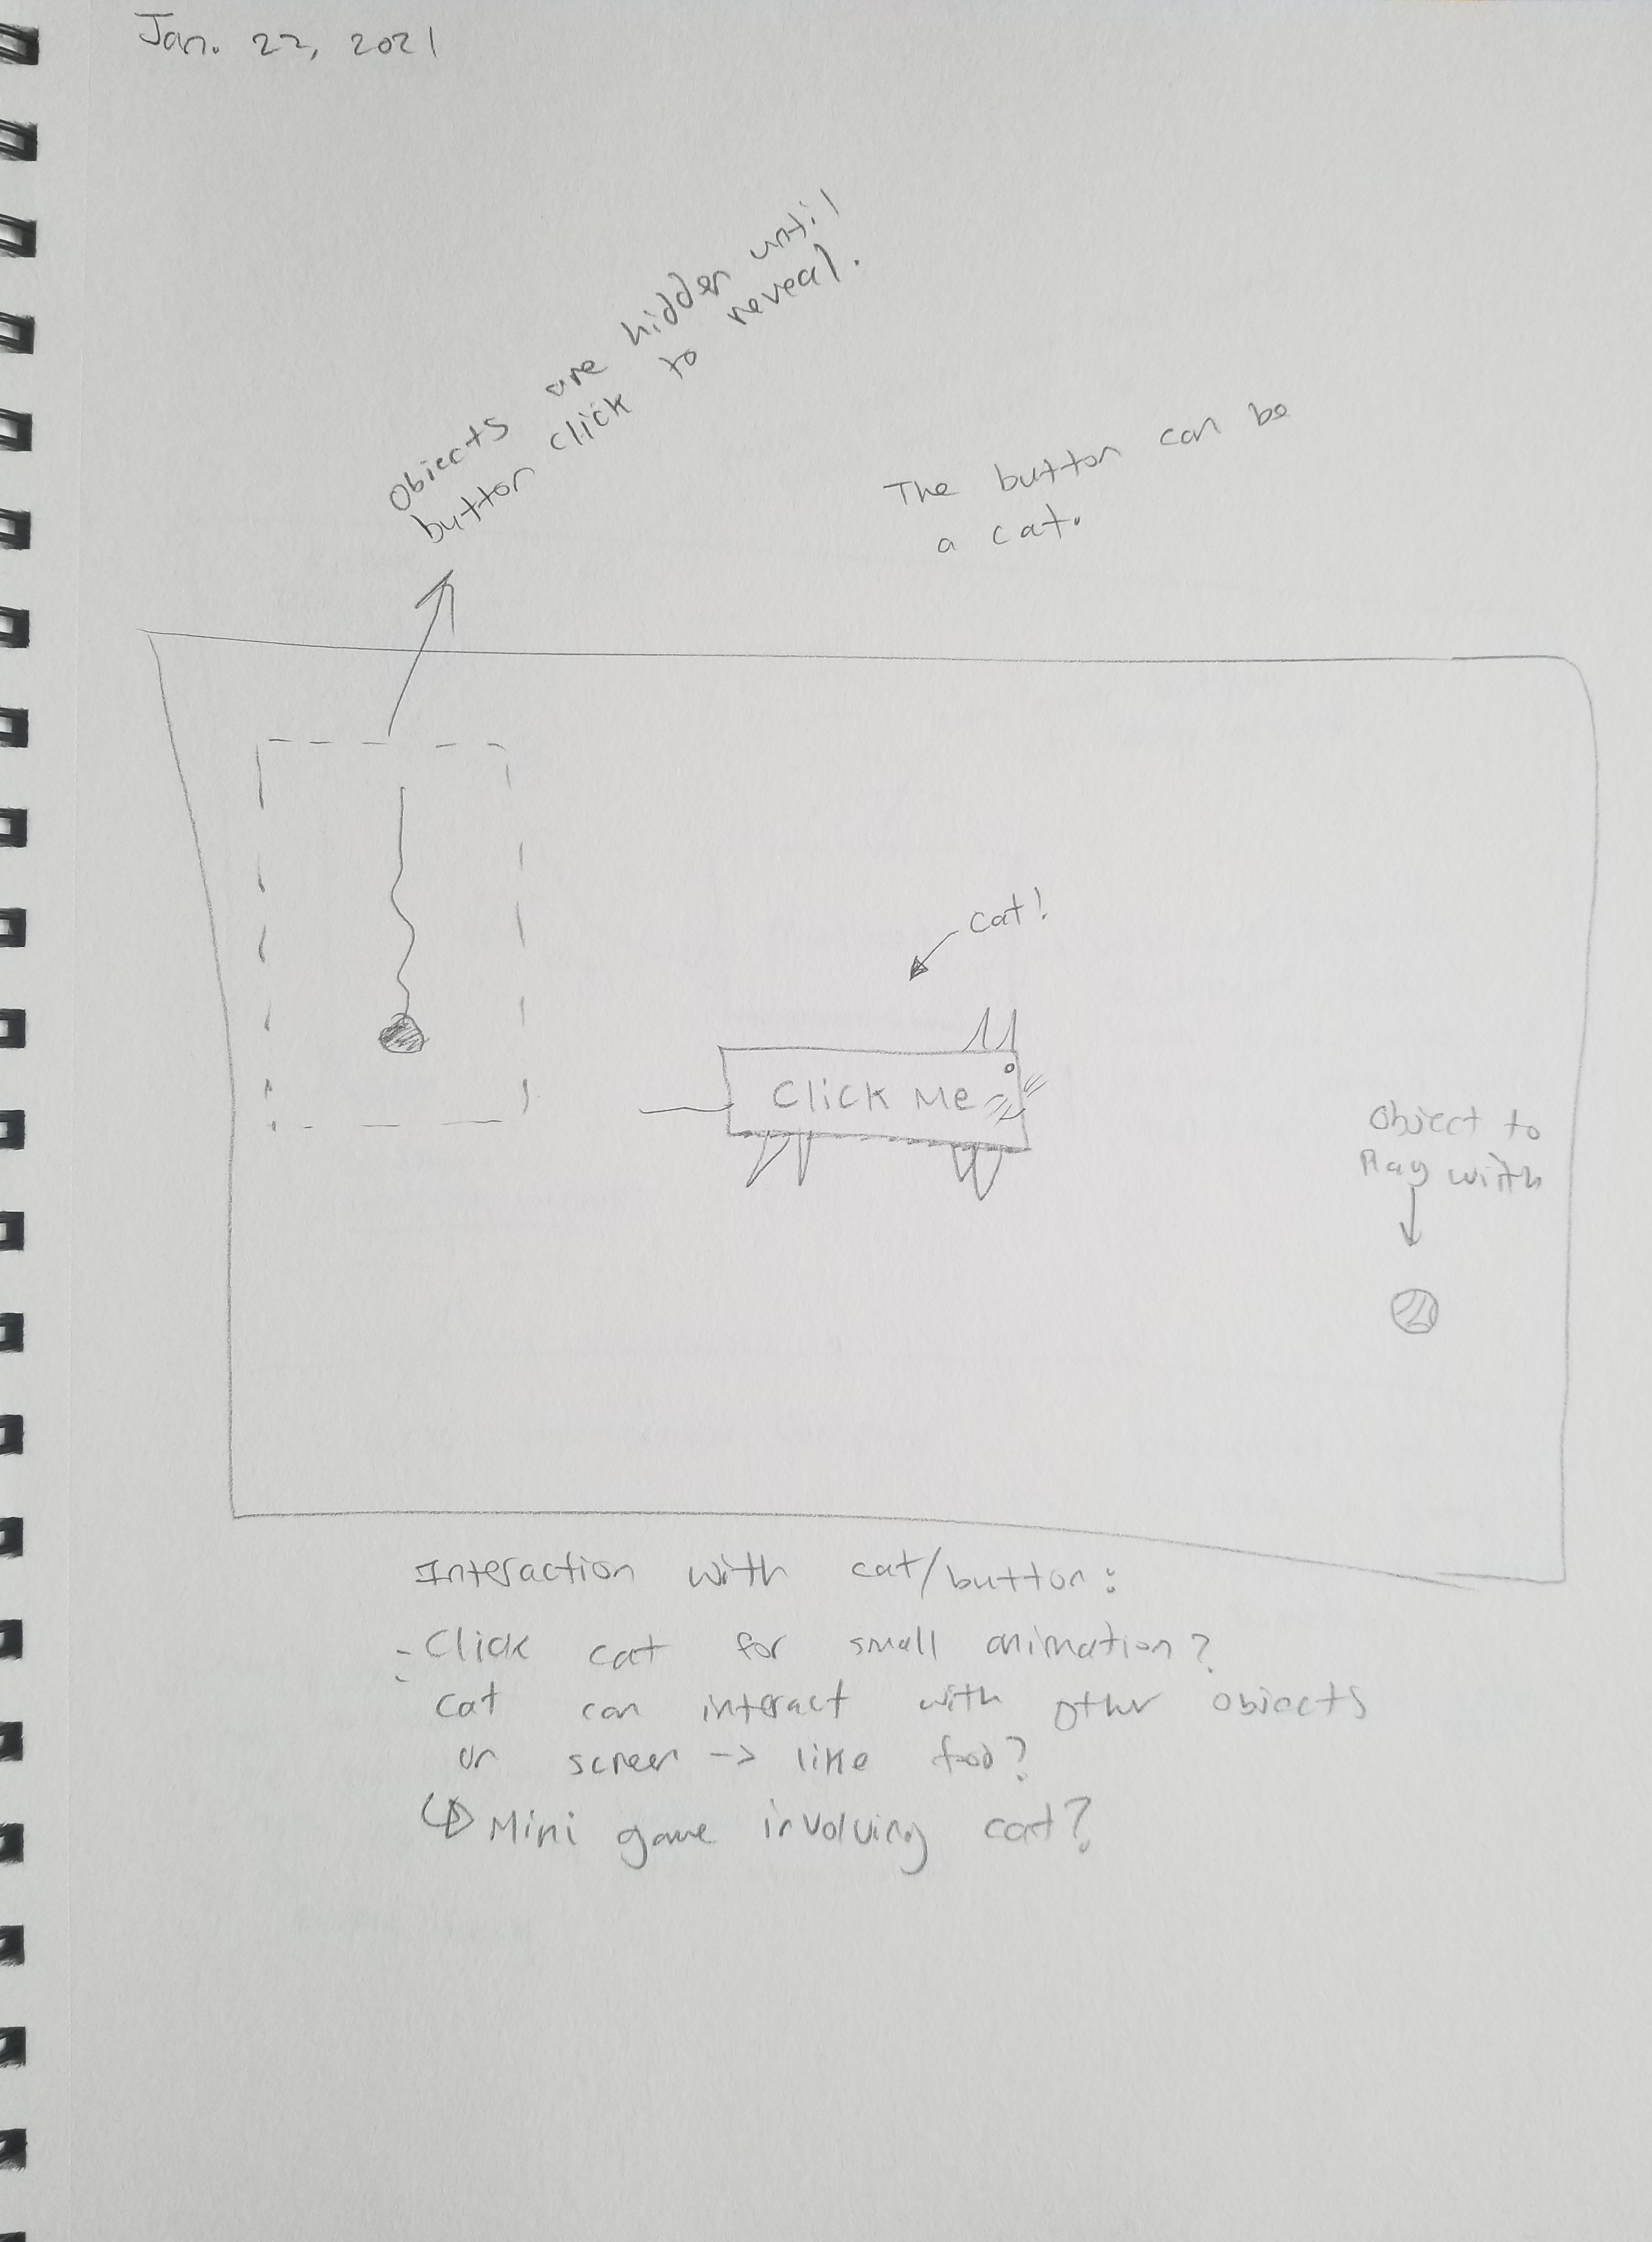 Jan. 22, 2021
Objects are hidden until
button click to reveal.
The button can be
a cat.
cat!
Click Me
Object to
Play with
Interaction with cat/button:
- Click cat for small animation?
- cat can interact with other objects
on screen -> like food?
↳ Mini game involving cat?